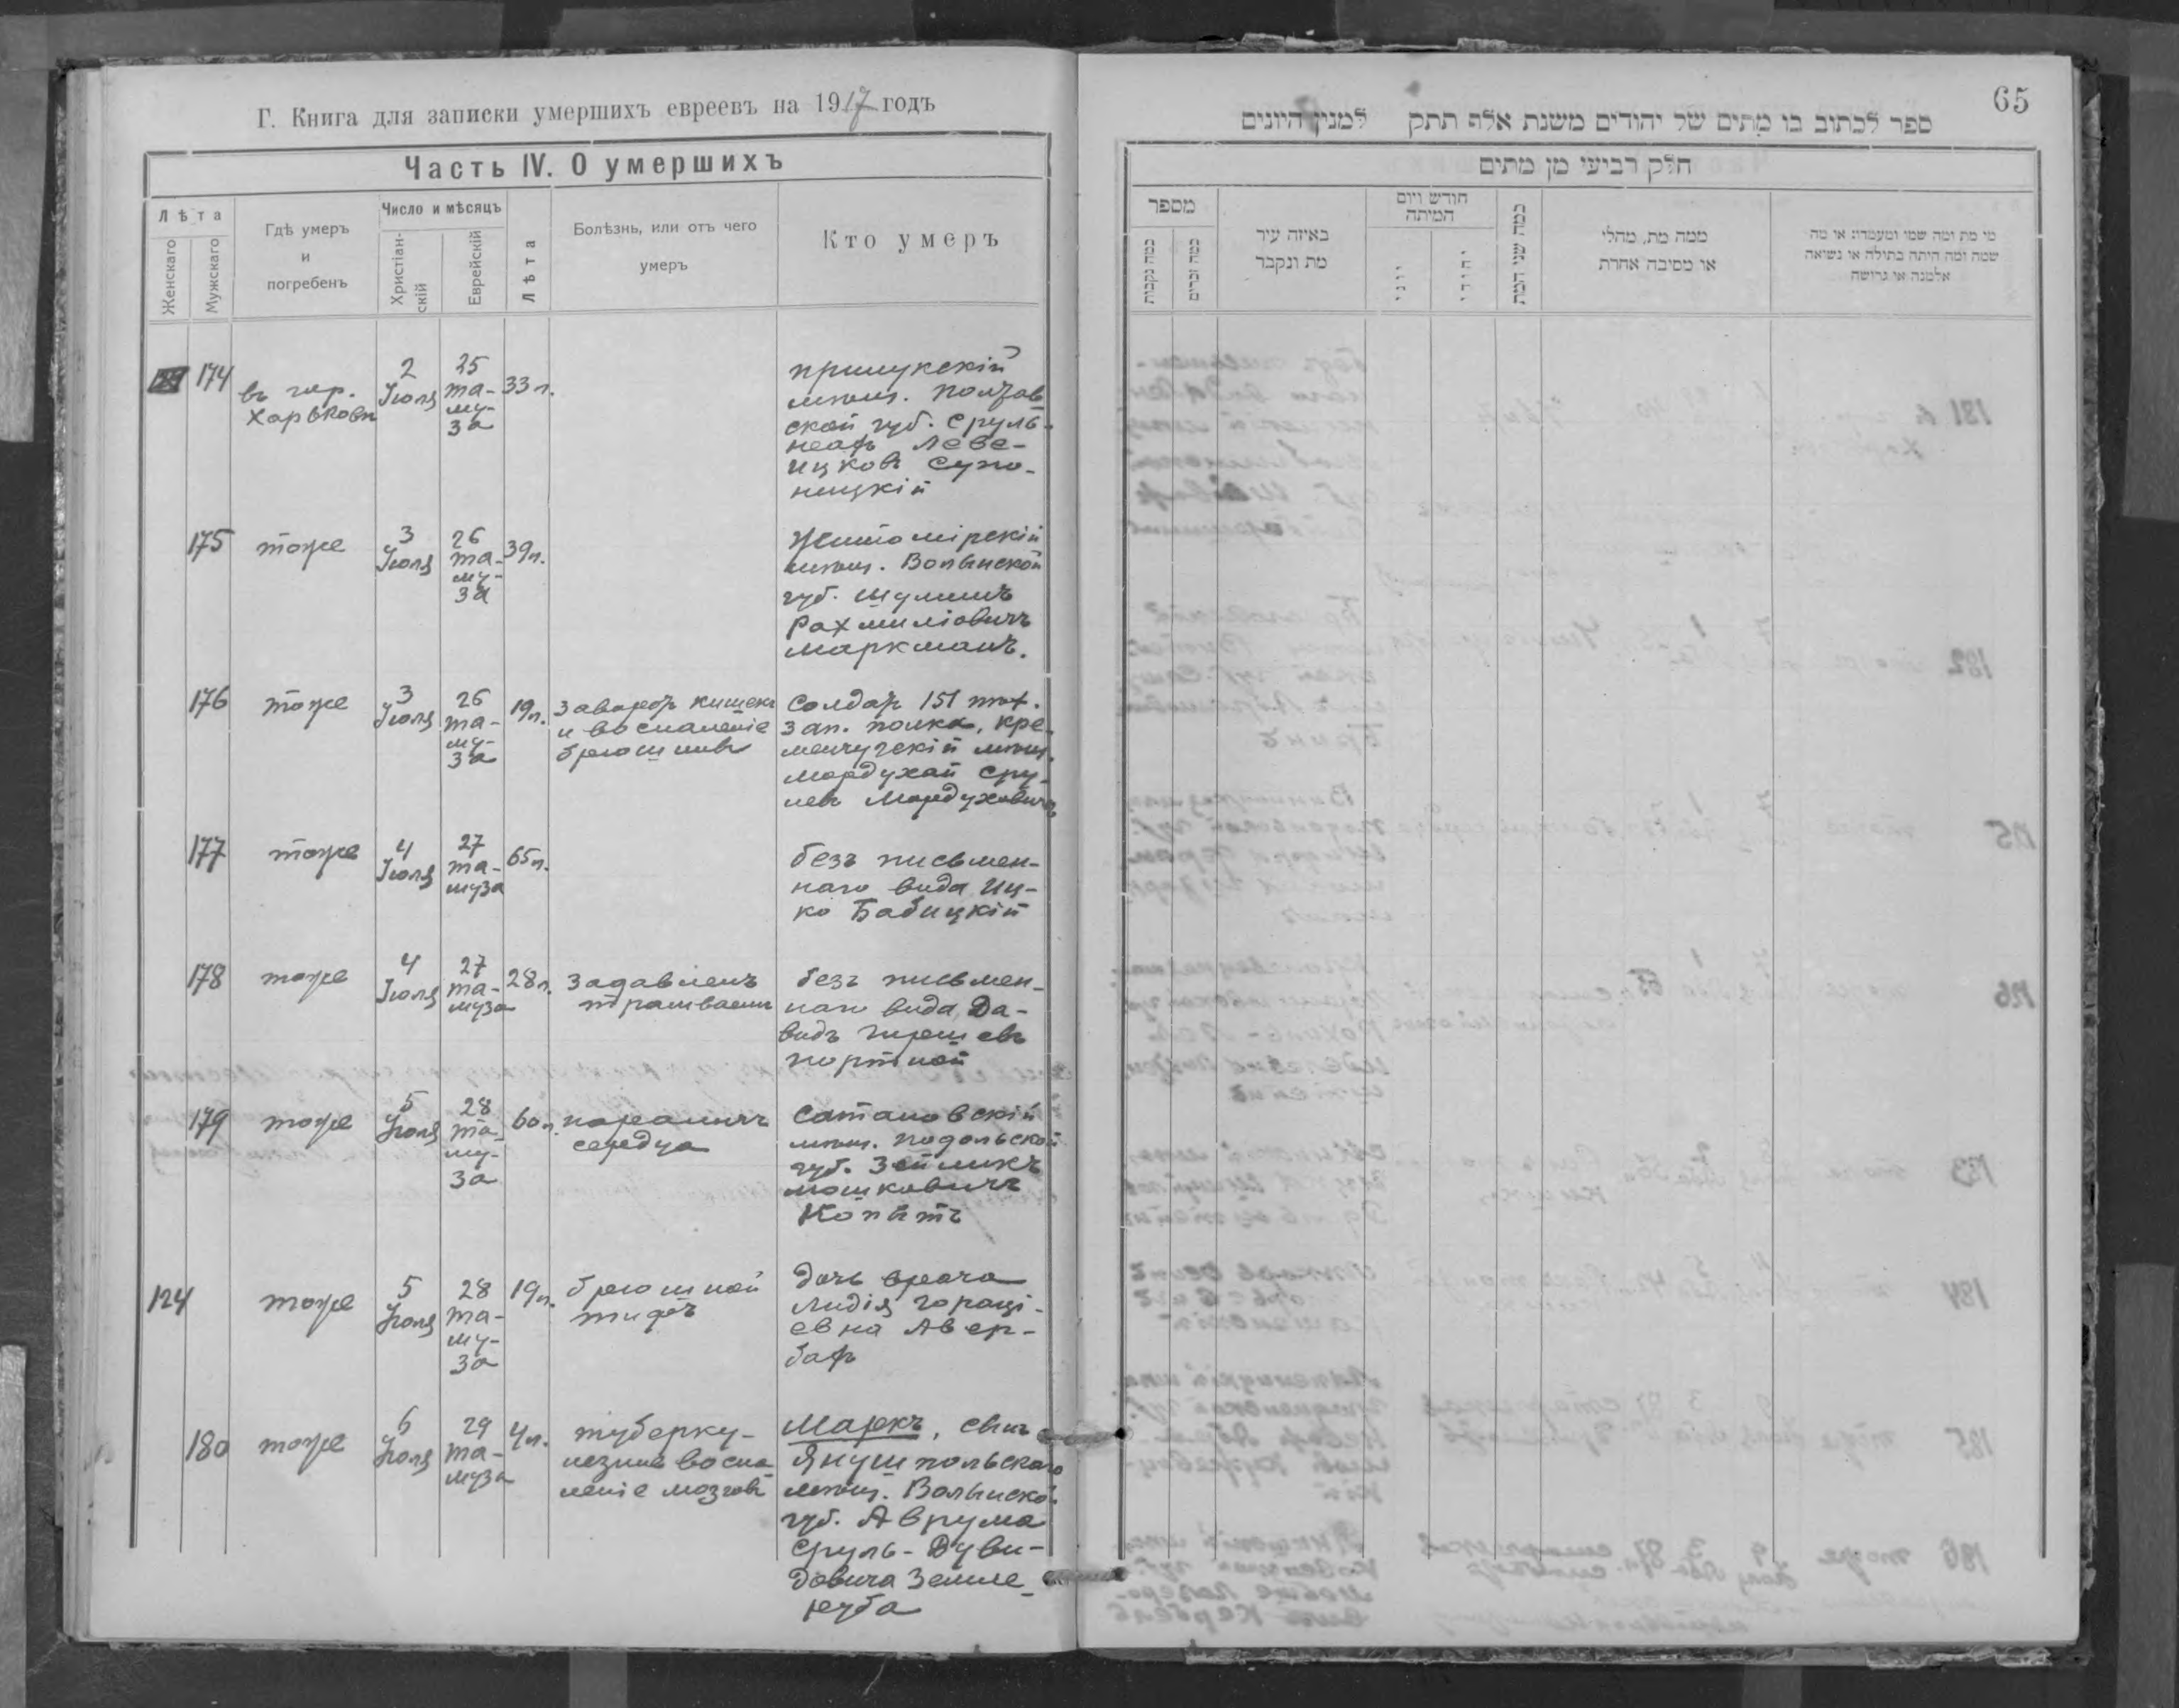 Г. Книга для записки умершихъ евреевъ на 1917 годъ
Часть IV. О умершихъ
Лѣта
Женскаго
Мужскаго
Гдѣ умеръ
и
погребенъ
Число и мѣсяцъ
Христіан-
скій
Еврейскій
Лѣта
Болѣзнь, или отъ чего
умеръ
Кто умеръ
174
въ гор.
Харьковѣ
2
Іюля
25
та-
му-
за
33 л.
прилукскій
мѣщ. Полтав
ской губ. Сруль-
Лезе-
ицковъ
175
тоже
3
Іюля
26
та-
му-
за
39 л.
Житомірскій
мѣщ. Волынской
губ. Шулимъ
Рахміліовичъ
Маркманъ.
176
тоже
3
Іюля
26
та-
му-
за
19 л.
Заворотъ кишекъ
и воспаленіе
брюшины
Солдатъ 151 пѣх.
зап. полка, Кре-
менчугскій мѣщ.
Мордухай Сру-
левъ Мордуховичъ
177
тоже
4
Іюля
27
та-
муза
65 л.
безъ письмен-
наго вида Иц-
ко Бабицкій
178
тоже
4
Іюля
27
та-
муза
28 л.
Задавленъ
трамваемъ
безъ письмен-
наго вида Да-
видъ
Портной
179
тоже
5
Іюля
28
та-
му-
за
60 л.
параличъ
сердца
Сатановскій
мѣщ. Подольской
губ. Зейликъ
Мошковичъ
Копытъ
124
тоже
5
Іюля
28
та-
му-
за
19 л.
брюшной
тифъ
Дочь врача
Лидія Гораці-
евна Авер-
бахъ
180
тоже
6
Іюля
29
та-
муза
4 л.
туберку-
лезное воспа
леніе мозговъ
Маркъ, сынъ
Янушпольскаго
мѣщ. Волынской
губ. Аврума
Сруль-Дуви-
довича Земле-
руба
65
ספר לכתוב בו מתים של יהודים משנת אלף תתק למנין היונים
חלק רביעי מן מתים
מספר
כמה נקבות
כמה זכרים
באיזה עיר
מת ונקבר
חודש ויום
המיתה
יוני
יהודי
כמה שני המת
ממה מת, מחלי
או מסיבה אחרת
מי מת ומה שמו ומעמדו: או מה
שמה ומה היתה בתולה או נשואה
אלמנה או גרושה